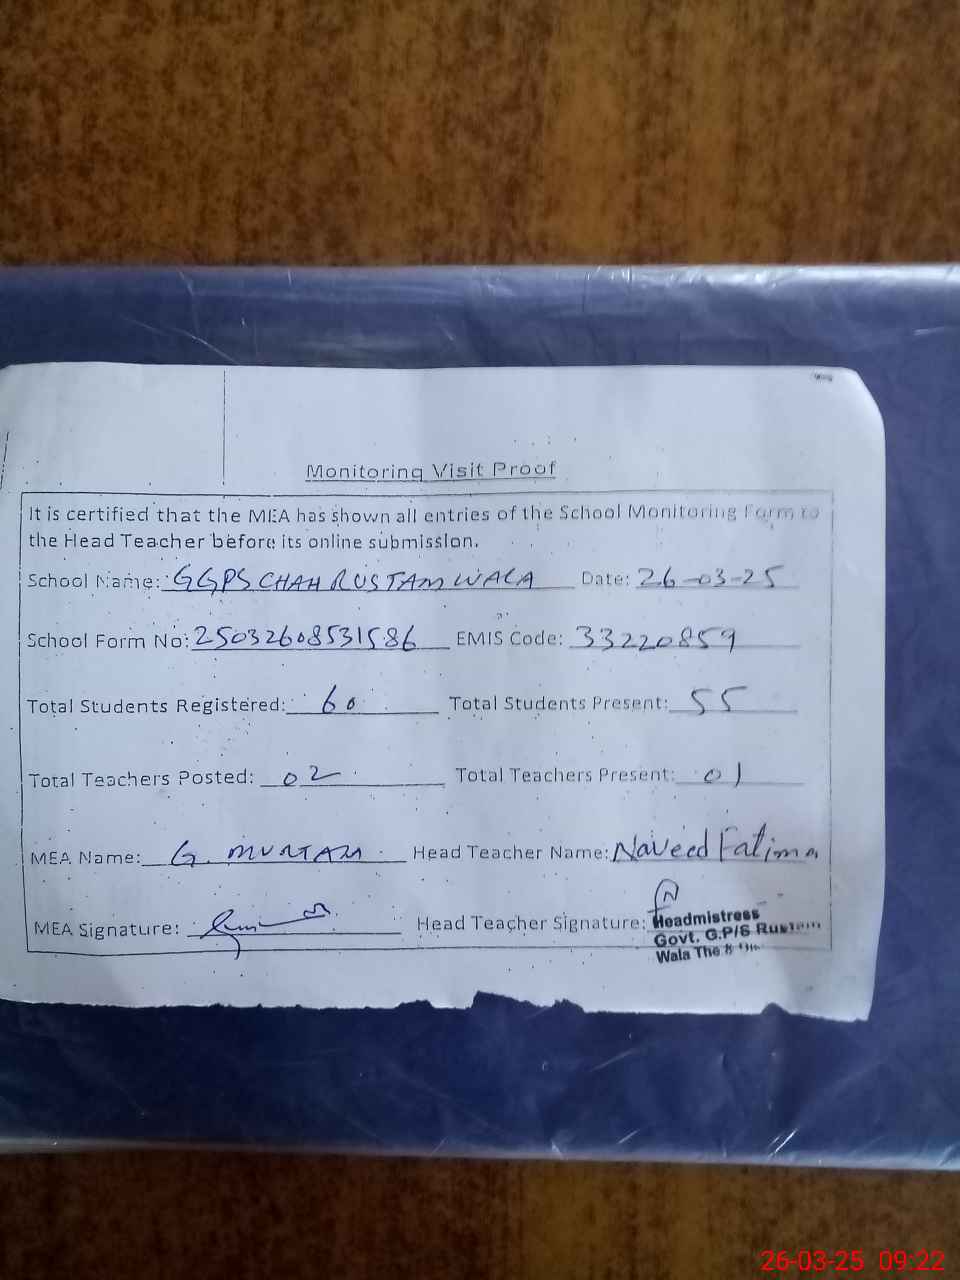 Monitoring Visit Proof
It is certified that the MEA has shown all entries of the School Monitoring Form to
the Head Teacher before its online submission.
School Name: GGPS CHAH RUSTAM WALA Date: 26-03-25
School Form No: 25032608531586 EMIS Code: 33220859
Total Students Registered: 60 Total Students Present: 55
Total Teachers Posted: 02 Total Teachers Present: 01
MEA Name: G. MURTAZA Head Teacher Name: Naveed Fatima
MEA Signature: Head Teacher Signature:
Headmistress
Govt. G.P/S Rustam
Wala The &
26-03-25 09:22